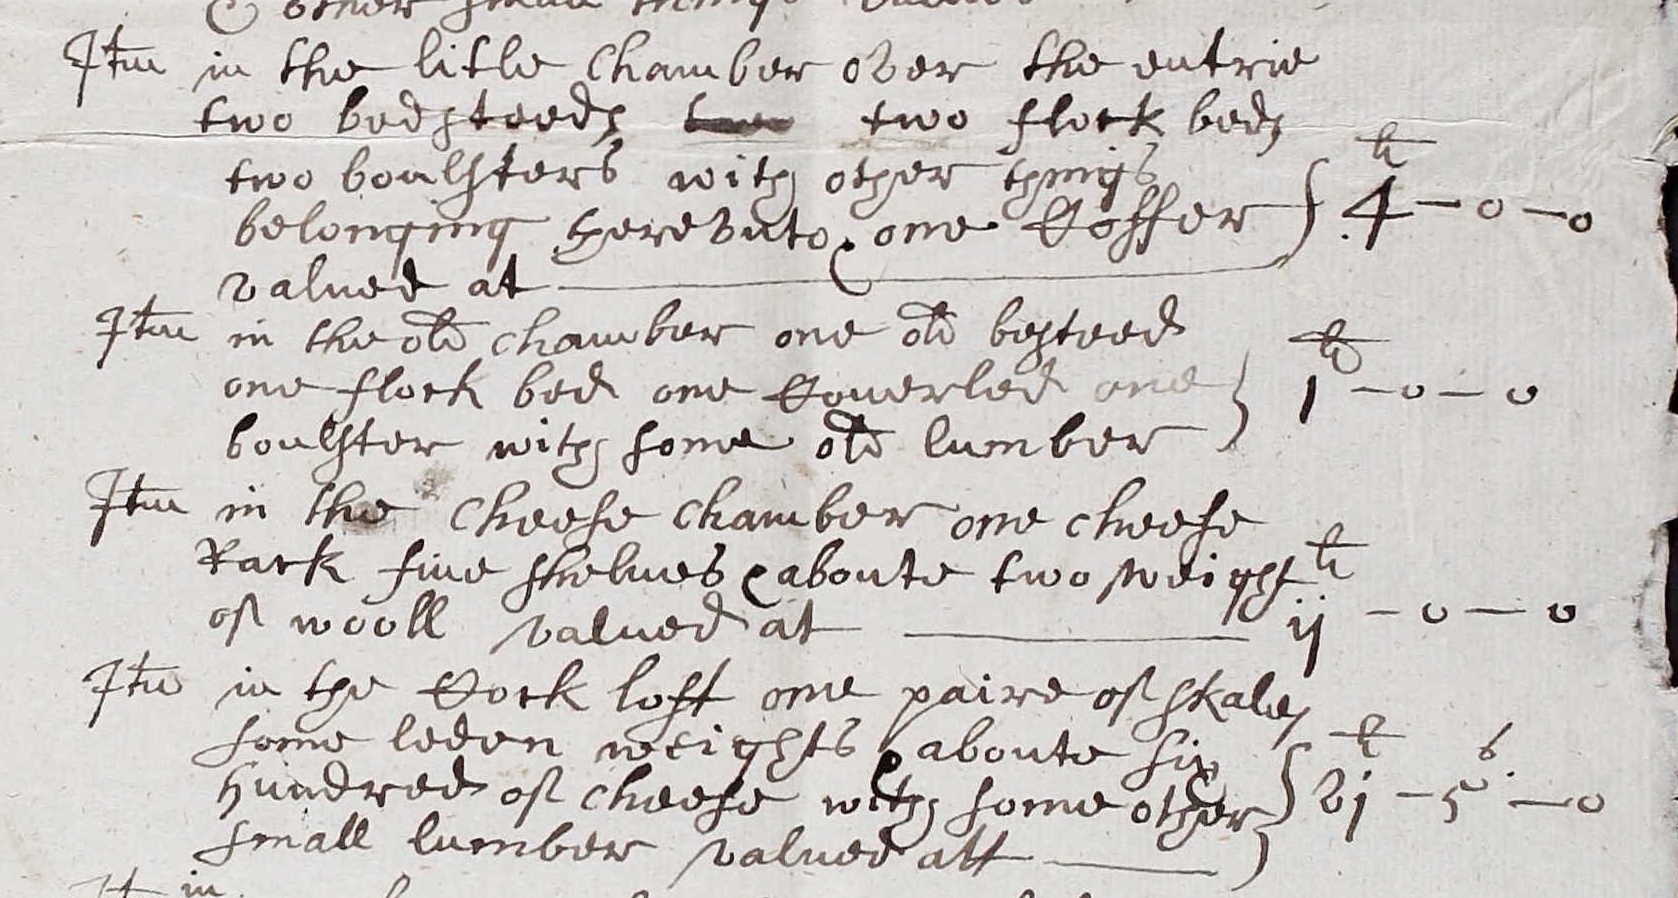 & other small things valued
Itm in the litle Chamber over the entrie
two bedsteeds two flock beds
two boulsters with other things
belonging hereunto & one Coffer } li 4 – 0 – 0
valued at
Itm in the old chamber one old besteed
one flock bed one Couerled one } li 1 – 0 – 0
boulster with some old lumber
Itm in the Cheese Chamber one cheese
Rack fiue shelues & aboute two weight li
of wooll valued at ij – 0 – 0
Itm in the Cock loft one paire of skales
some leden weights & aboute six li s
hundred of cheese with some other } vj – 5 – 0
small lumber valued att